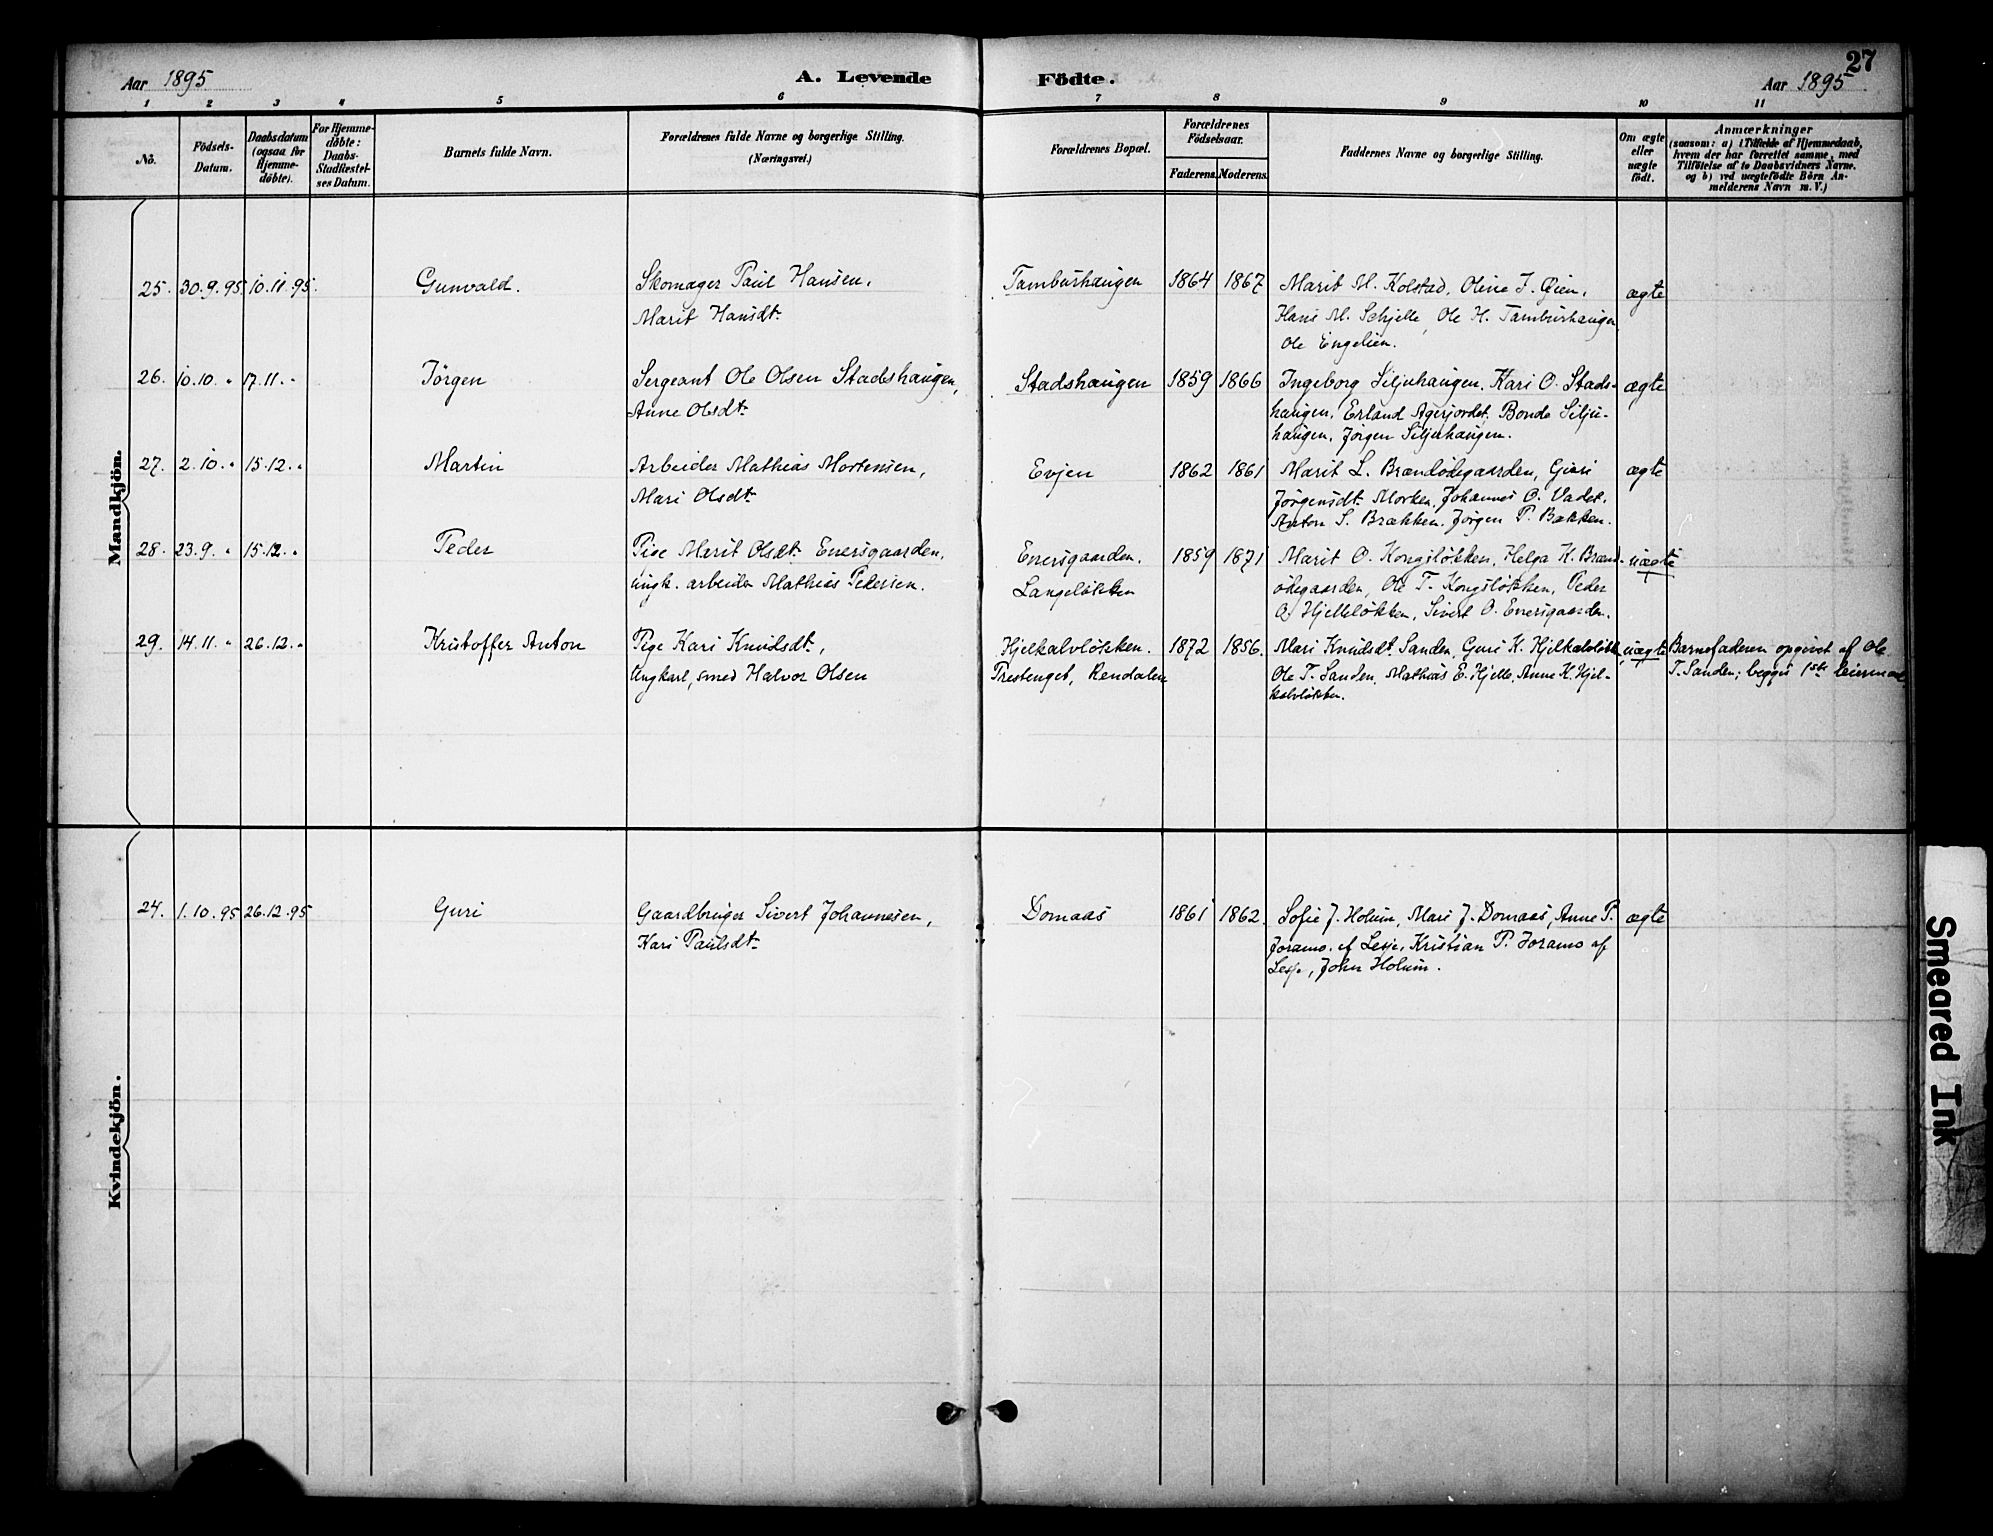 27
Aar 1895
A. Levende
Födte.
Aar 1895
1 2 3 4 5 6 7 8 9 10 11
No.
Födsels-
Datum.
Daabsdatum
(ogsaa for
Hjemme-
döbte).
For Hjemme-
döbte:
Daabs-
Stadfæstel-
ses Datum.
Barnets fulde Navn.
Forældrenes fulde Navne og borgerlige Stilling.
(Næringsvei.)
Forældrenes Bopæl.
Forældrenes
Födselsaar.
Faderens. Moderens.
Faddernes Navne og borgerlige Stilling.
Om ægte
eller
uægte
födt.
Anmærkninger
(saasom: a) i Tilfælde af Hjemmedaab,
hvem der har forrettet samme, med
Tilföielse af to Daabsvidners Navne.
og b) ved uægtefödte Börn An-
melderens Navn m. V.)
Mandkjön.
25. 30.9.95 10.11.95. Gunvald. Skomager Paul Hansen, Tamburhaugen 1864 1867 Marit M. Kolstad, Oline J. Øien, ægte
Marit Hansdt. Hans M. Schjelle, Ole H. Tamburhaugen
Ole Engelien.
26. 10.10. " 17.11. " Jörgen Sergeant Ole Olsen Stadshaugen, Stadshaugen 1859 1866 Ingeborg Siljuhaugen, Kari O. Stads- ægte
Anne Olsdt. haugen, Erland Agerjordet, Bonde Silju-
haugen, Jørgen Siljuhaugen.
27. 2.10. " 15.12. " Martin Arbeider Mathias Mortensen, Evjen 1862 1861 Marit L. Brændødegaarden, Guri ægte
Mari Olsdt. Jørgensdt. Morken, Johannes O. Vadet,
Anton S. Brækken, Jørgen P. Bakken.
28. 23.9. " 15.12. " Peder Pige Marit Olsdt. Enersgaarden, Enersgaarden. 1859 1871 Marit O. Kongsløkken, Helga H. Brænd- uægte
ungk. arbeider Mathias Pedersen. Langeløkken ødegaarden, Ole T. Kongsløkken, Peder
O. Hjelleløkken, Sivert O. Enersgaarden.
29. 14.11. " 26.12. " Kristoffer Anton Pige Kari Knudsdt., Hjelkalvløkken. 1872 1856. Mari Knudsdt. Sanden, Guri K. Hjelkalvløkk., uægte Barnefaderen opgivet af Ole
Ungkarl, smed Halvor Olsen Prestenget, Rendalen Ole T. Sanden, Mathias E. Hjelle, Anne K. Hjel- T. Sanden; begges 1ste leiermaal.
kalvløkken.
Kvindekjön.
24. 1.10.95 26.12.95 Guri Gaardbruger Sivert Johannesen, Domaas 1861 1862. Sofie J. Holum, Mari J. Domaas, Anne P. ægte
Kari Paulsdt. Joramo af Lesje, Kristian P. Joramo af
Lesje, John Holum.
Smeared Ink